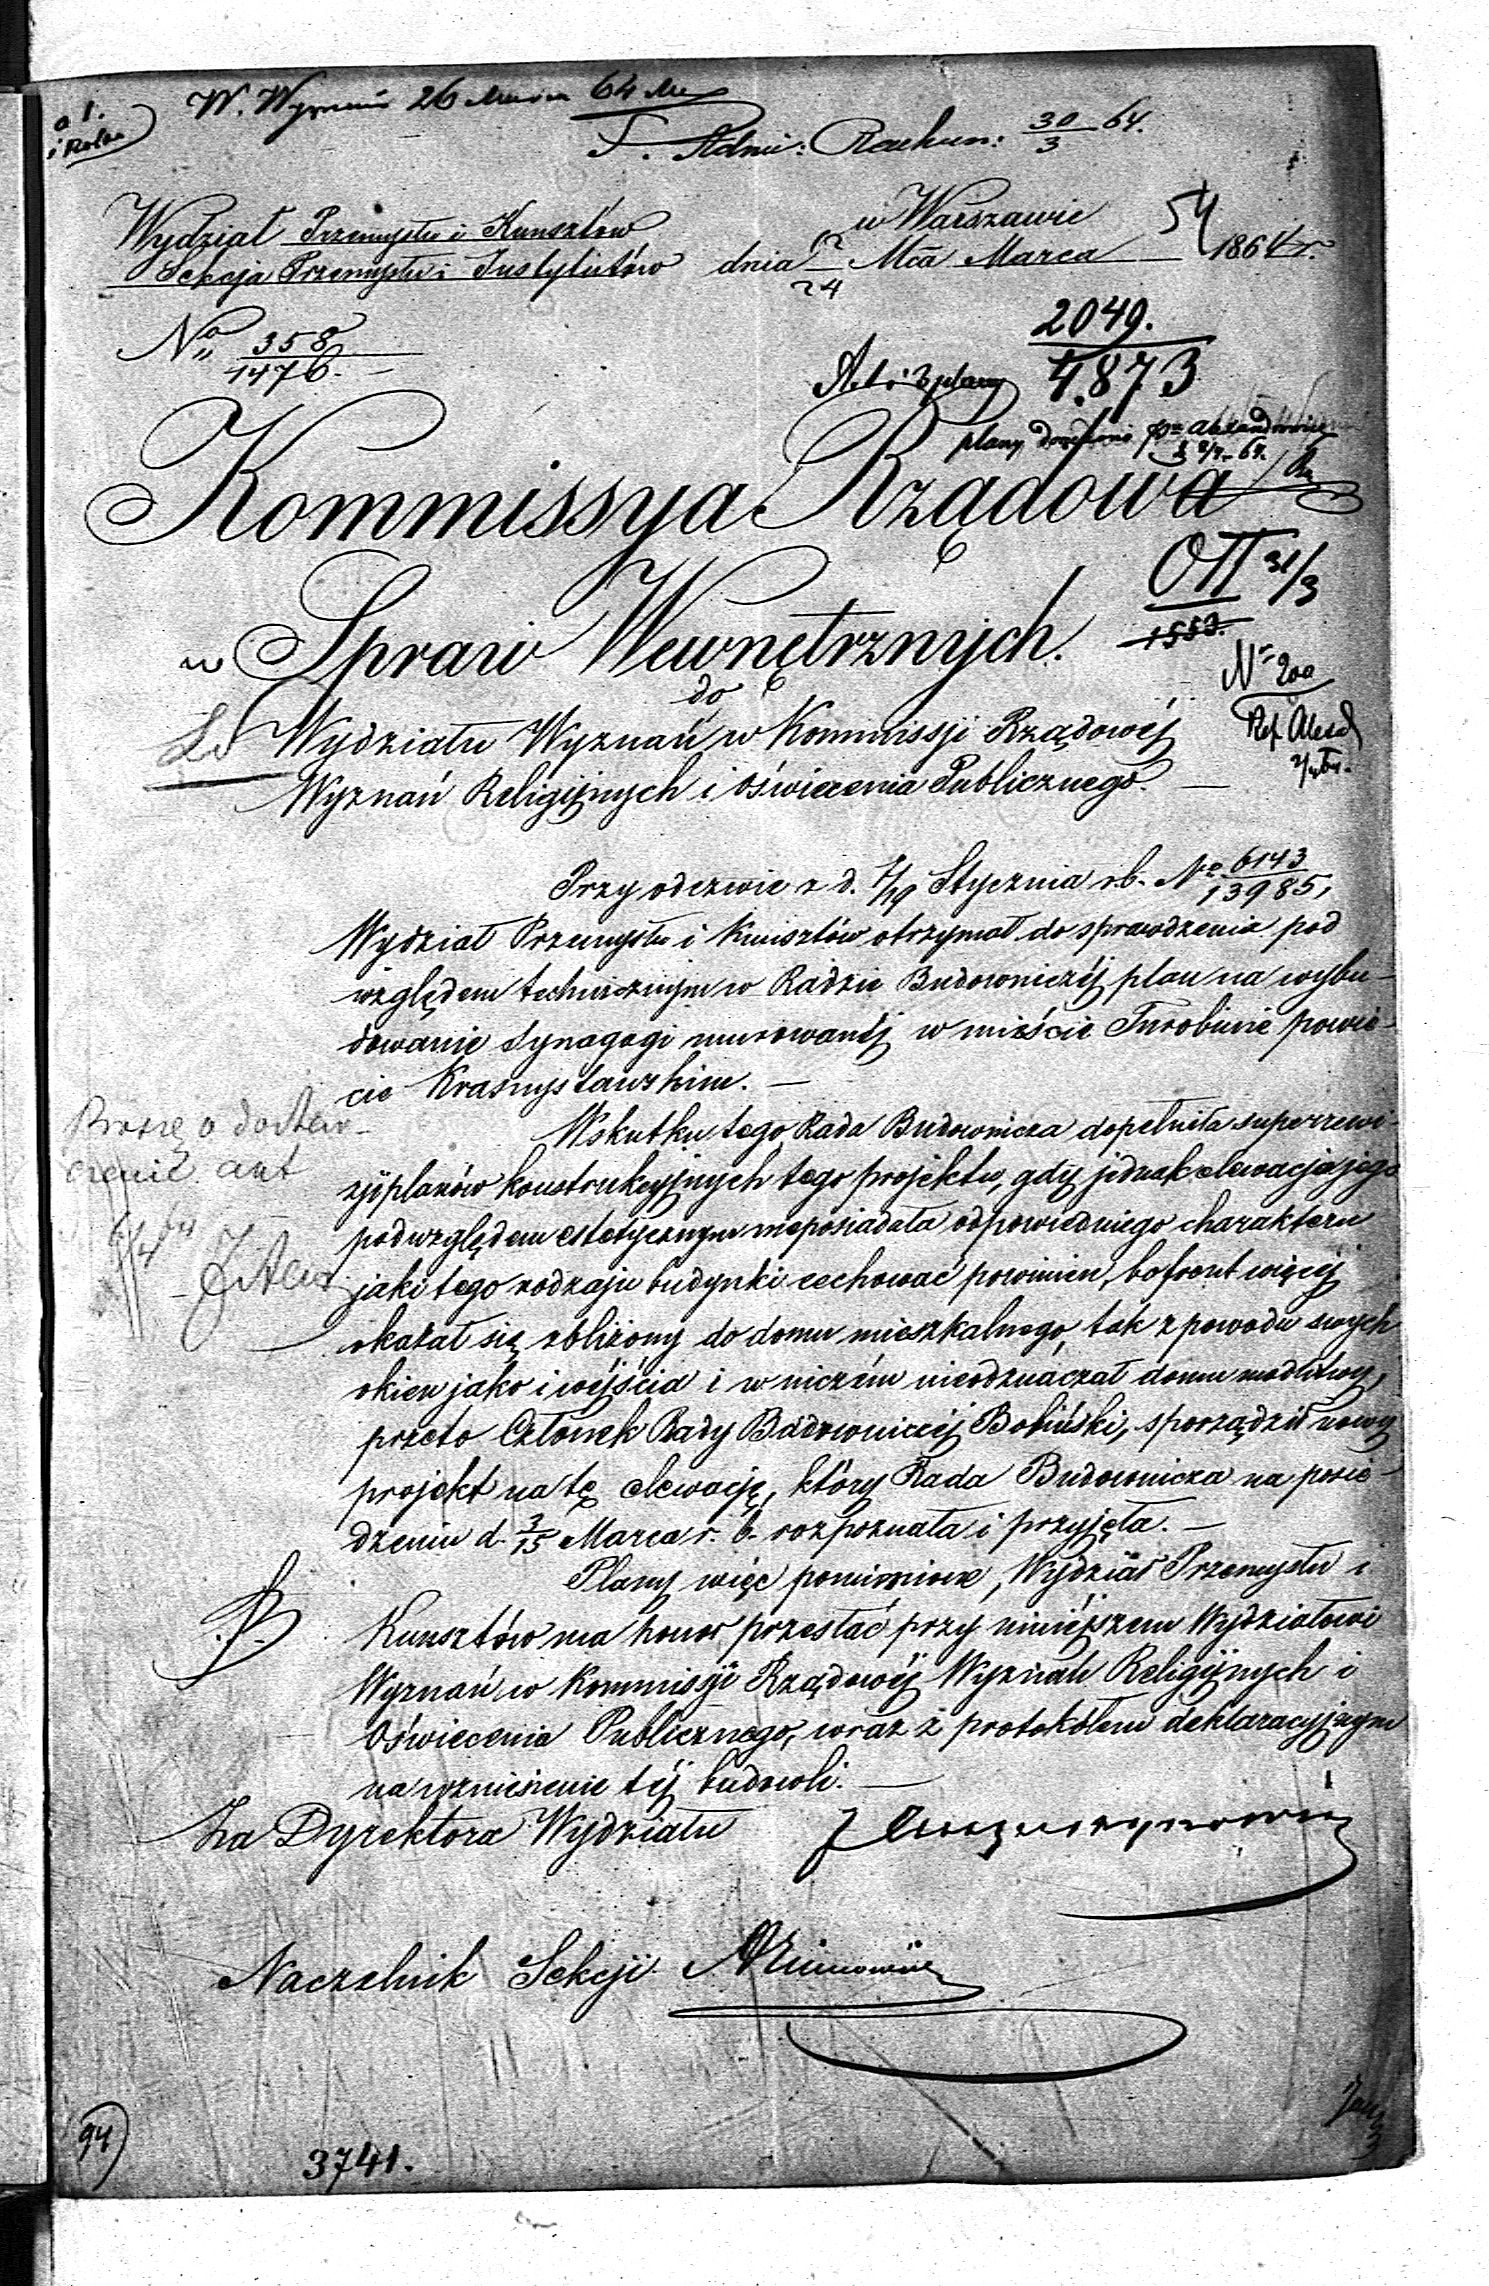 W. Wyznań 26 Marca 64
Rachun: 30/3 64.
Wydział Przemysłu i Kunsztów
w Warszawie
54
Sekcja Przemysłu i Instytutów dnia 12/24 Mca Marca 1864 r.
No 358/1476.
2049.
4.873
plany
Kommissya Rządowa
Spraw Wewnętrznych.
31/3
1553.
do
No 200
Wydziału Wyznań w Kommissji Rządowéj
Wyznań Religijnych i Oświecenia Publicznego.
Przy odezwie z d. 7/19 Stycznia r.b. No 6143/13985,
Wydział Przemysłu i Kunsztów otrzymał do sprawdzenia pod
względem technicznym w Radzie Budowniczéj plan na wybu-
dowanie Synagogi murowanéj w mieście Turobinie powie-
cie Krasnystawskim.
Wskutku tego Rada Budownicza dopełniła superrewi-
zji planów konstrukcyjnych tego projektu, gdy jednak elewacja jego
pod względem estetycznym nieposiadała odpowiedniego charakteru
jaki tego rodzaju budynki cechować powinien, bo front więcéj
okazał się zbliżony do domu mieszkalnego, tak z powodu swych
okien jako i wéjścia i w niczém nieoznaczał domu modlitwy,
przeto Członek Rady Budowniczéj Bobiński, sporządził nowy
projekt na tę elewację, który Rada Budownicza na posie-
dzeniu d. 3/15 Marca r. b. rozpoznała i przyjęta.
Plany więc pomienione, Wydział Przemysłu i
Kunsztów ma honor przesłać przy niniéjszem Wydziałowi
Wyznań w Kommissji Rządowéj Wyznań Religijnych i
Oświecenia Publicznego, wraz z protokółem deklaracyjnym
na wzniesienie téj budowli.
Proszę o dostar-
czenie akt
Za Dyrektora Wydziału
Naczelnik Sekcji
94
3741.